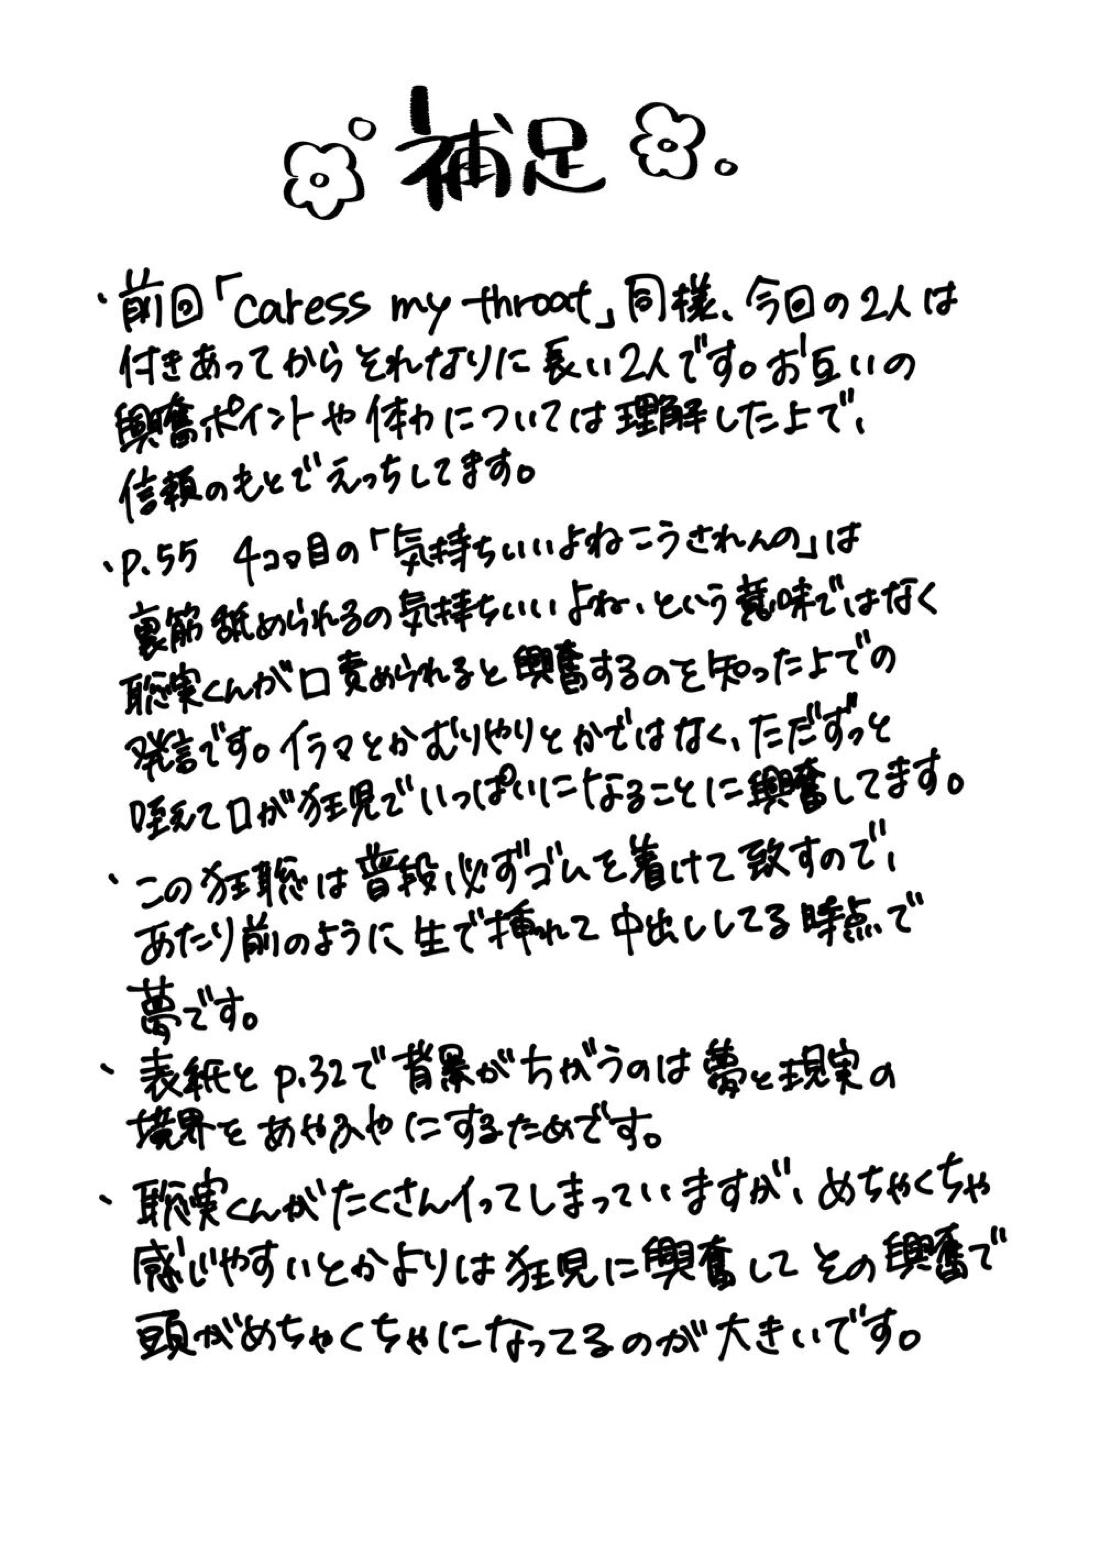 補足
・前回「caress my throat」同様、今回の2人は
付きあってからそれなりに長い2人です。お互いの
興奮ポイントや体力については理解した上で、
信頼のもとでえっちしてます。
・P.55 4コマ目の「気持ちいいよねこうされんの」は
裏筋舐められるの気持ちいいよね、という意味ではなく
聡実くんが口責められると興奮するのを知った上での
発言です。イラマとかむりやりとかではなく、ただずっと
咥えて口が狂児でいっぱいになることに興奮してます。
・この狂聡は普段必ずゴムを着けて致すので、
あたり前のように生で挿れて中出ししてる時点で
夢です。
・表紙とp.32で背景がちがうのは夢と現実の
境界をあやふやにするためです。
・聡実くんがたくさんイってしまっていますが、めちゃくちゃ
感じやすいとかよりは狂児に興奮してその興奮で
頭がめちゃくちゃになってるのが大きいです。